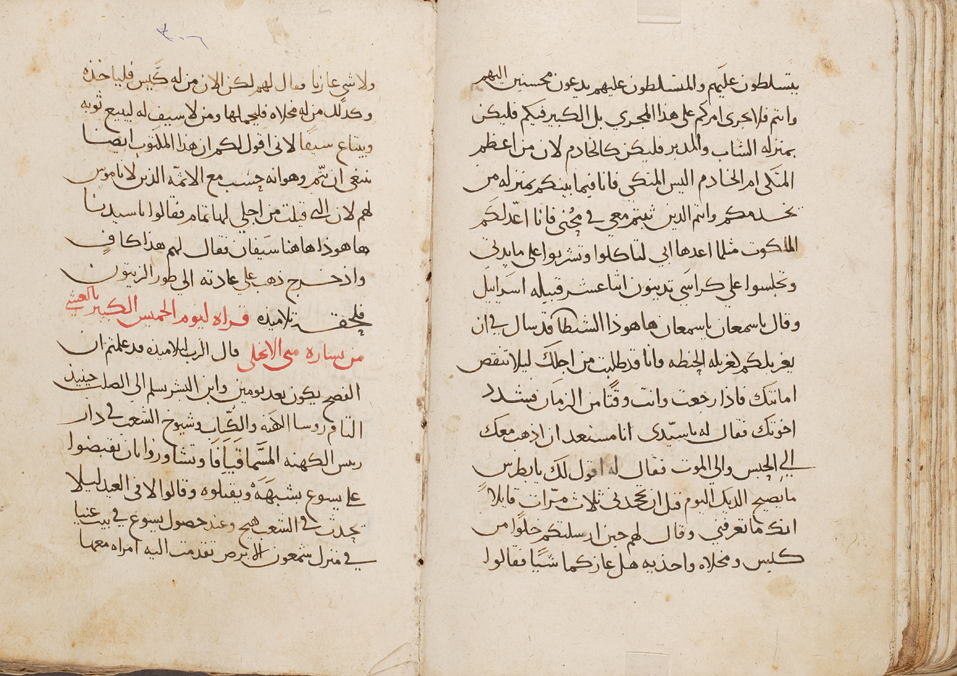 يتسلطون عليهم والمتسلطون عليهم يدعون محسنين اليهم
وانتم فلا يجرى امركم على هذا المجري بل الكبير فيكم فليكن
بمنزله الشاب والمدبر فليكن كالخادم لان من اعظم
المتكى ام الخادم اليس المتكى فانا فيما بينكم بمنزله من
يخدمكم وانتم الذين ثبتم معي في محني فانا اعد لكم
الملكوت مثلما اعدها ابي لتاكلوا وتشربوا على مايدتي
وتجلسوا على كراسى تدينون اثنا عشر قبيله اسراييل
وقال ياسمعان ياسمعان هاهوذا الشيطان قد سال في ان
يغربلكم لغربله الحنطه وانا قد طلبت من اجلك ليلا تنقص
امانتك فاذا رجعت وانت وقتا من الزمان فشدد
اخوتك فقال له ياسيدى انا مستعد ان اذهب معك
الى الحبس والى الموت فقال له اقول لك يابطرس
ما يصيح الديك اليوم قبل ان تجحدني ثلاث مرات قايلا
انك ما تعرفني وقال لهم حين ارسلتكم خلوا من
كيس ومخلاه واحذيه هل عازكما شيا فقالوا
ولا شي عازنا فقال لهم لكن الان من له كيس فلياخذه
وكذلك من له مخلاه فليحملها ومن لا سيف له ليبيع ثوبه
ويبتاع سيفا لاني اقول لكم ان هذا المكتوب ايضا
ينبغى ان يتم وهو انه حسب مع الاثمه الذين لا ناموس
لهم لان التي قيلت من اجلي لها تمام فقالوا ياسيدنا
ها هوذا هاهنا سيفان فقال لهم هذا كاف
واذ خرج ذهب على عادته الى طور الزيتون
فلحقه تلاميذه قراه ليوم الخميس الكبير بالعشي
من بشاره متى الانجلى قال الرب لتلاميذه قد علمتم ان
الفصح يكون بعد يومين وابن البشر يسلم الى الصلب حينيذ
التام روسا الكهنه والكتاب وشيوخ الشعب في دار
ريس الكهنه المسما قيافا وتشاوروا بان يقبضوا
على يسوع بشبهه ويقتلوه وقالوا لا في العيد ليلا
يحدث في الشعب هيج وعند حصول يسوع في بيت عنيا
في منزل شمعون الابرص تقدمت اليه امراه معها